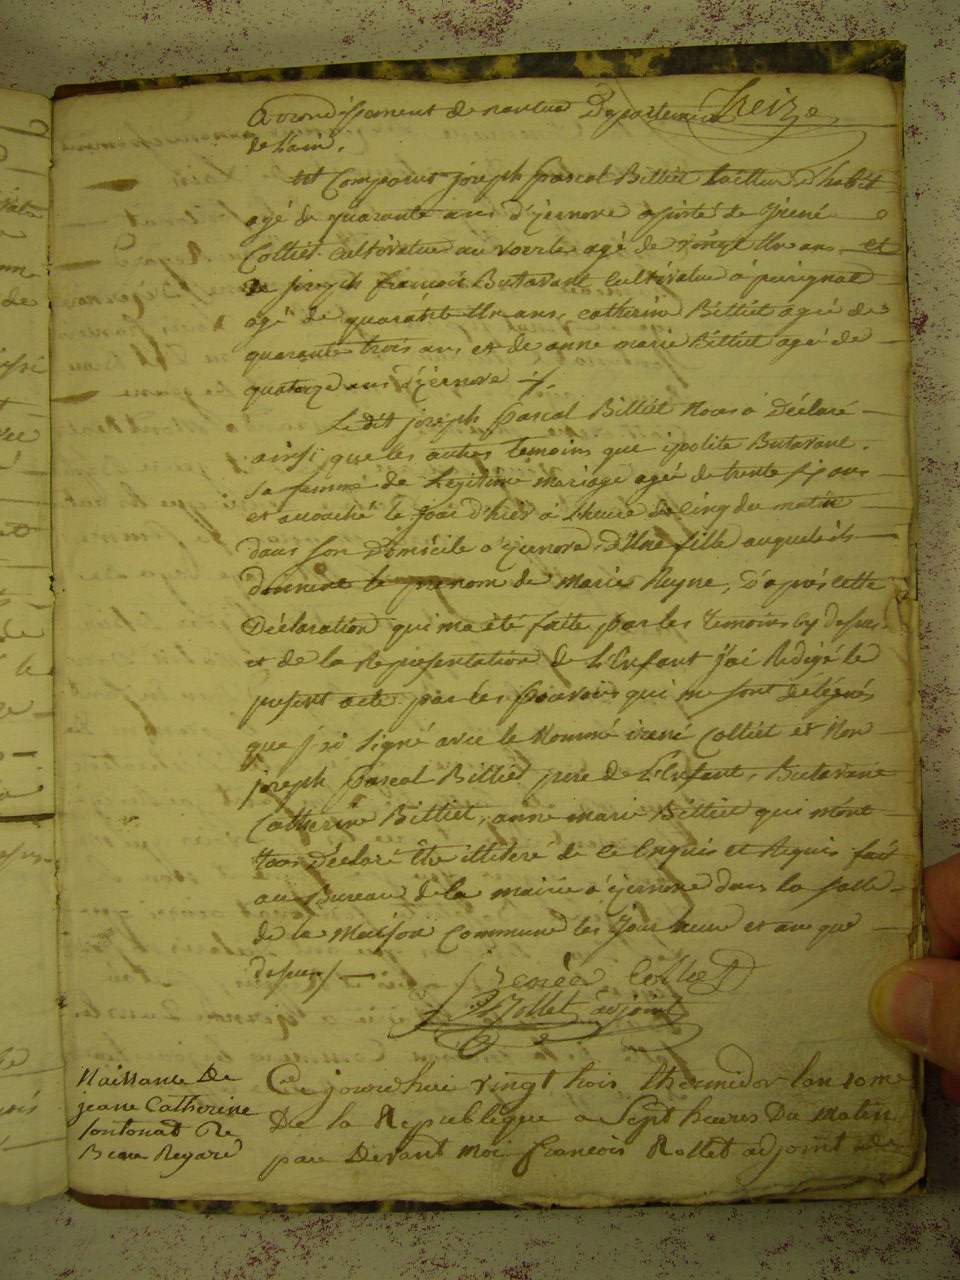 Treize
arrondissement de nantua Departement
de Lain.
est Comparus joseph pascal Billiet tailleur d'habit
agé de quarante ans d'izernore assisté de irené
Colliet Cultivateur au voerle agé de vingt un ans et
de joseph francois Butavant Cultivateur a perignat
agé de quarante un ans, catherine Billiet agée de
quarante trois ans et de anne marie Billiet agé de
quatorze ans d'izernore
Le dit joseph pascal Billiet Nous a Déclaré
ainsi que les autres temoins que ipolite Butavant
sa femme de Legitime mariage agée de trente six ans
et acouché le jour d'hier a Lheure de Cinq du matin
dans son Domicile a izernore, d'Une fille auquele ils
donnent le prenom de marie Reyne, D'après cette
Déclaration qui ma été faite par les temoins cy dessus
et de la Representation de L'Enfant j'ai Redigé le
present acte par les pouvoirs qui me sont délégués
que j'ai Signé avec le Nommé irené Colliet et Non
joseph pascal Billiet pere de L'Enfant, Butavant
Catherine Billiet, anne marie Billiet qui mont
tous Déclaré Etre illiteré de ce Enquis et Requis fait
au Bureau de la mairie a izernore dans la salle
de la Maison Commune les Jour heure et an que
dessus
irenée Colliet
Rollet adjoint
Naissance De
jeane Catherine
fontonat De
Beau Regard
Ce jourd'hui vingt trois thermidor lan 10 me
De la Republique a Sept heures Du Matin
par Devant Moi francois Rollet adjoint de